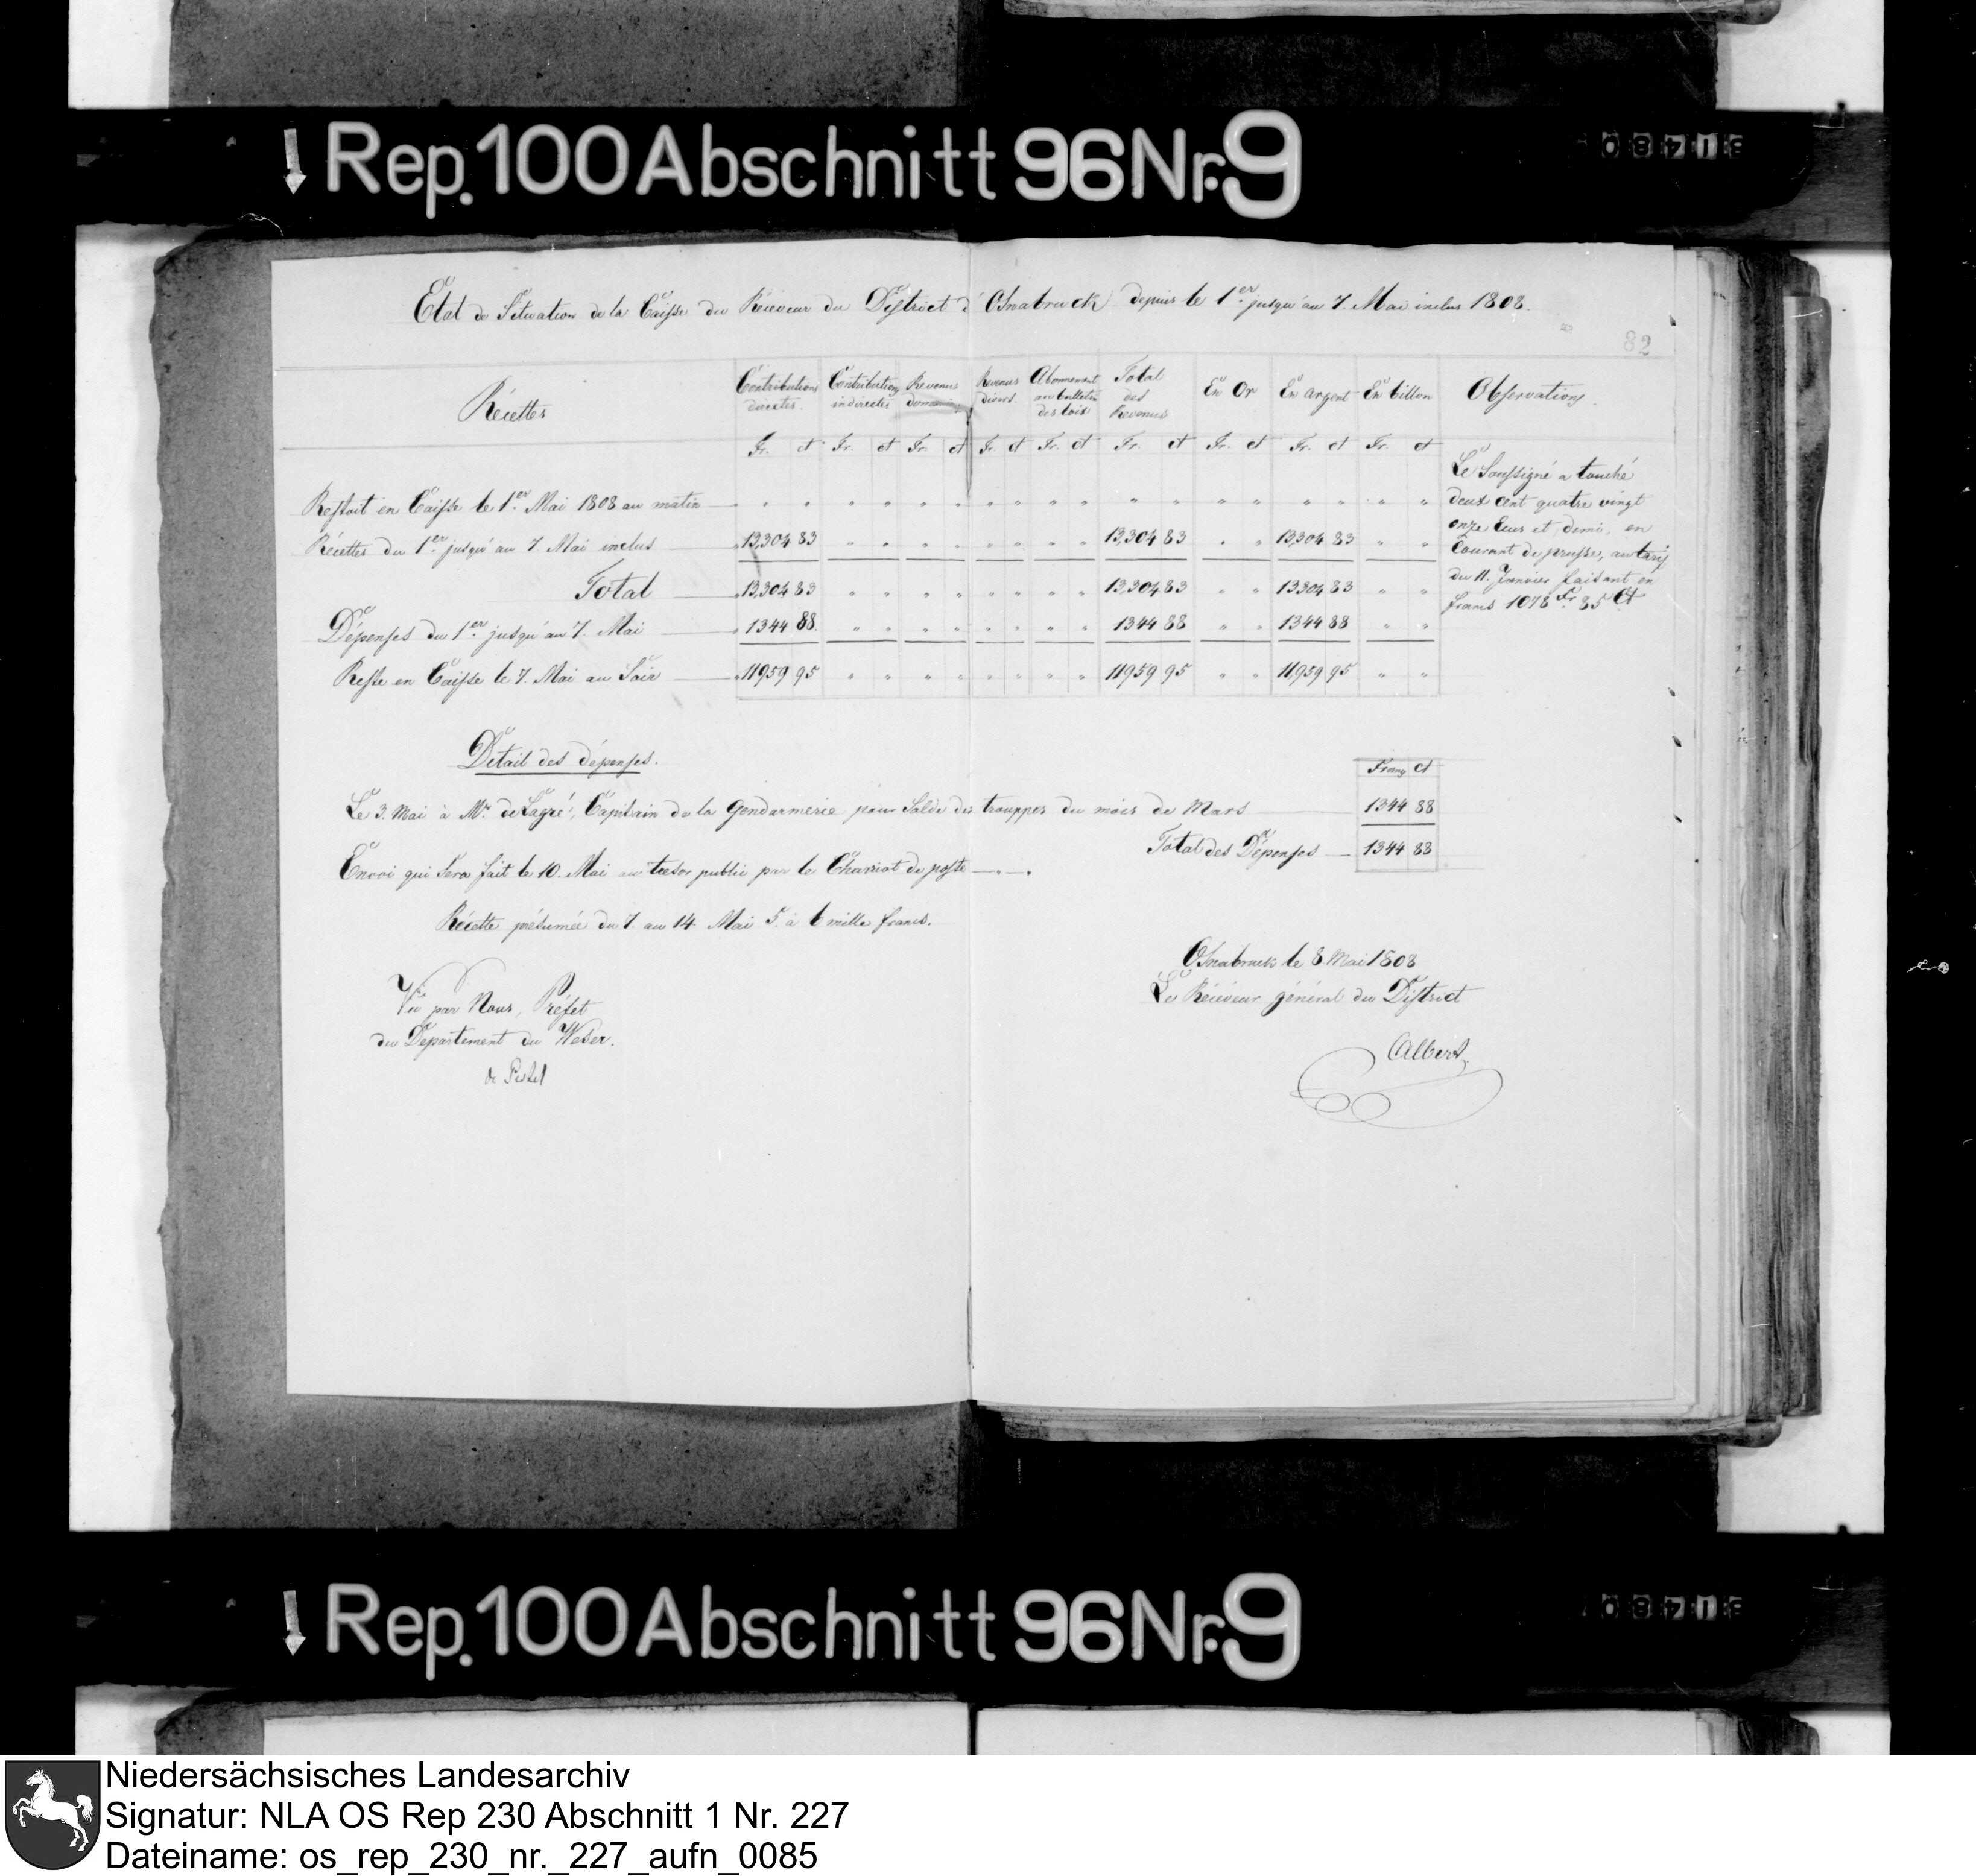 Rep. 100 Abschnitt 96 Nr. 9
Etat de Situation de la Caisse du Réceveur du District d'Osnabruck depuis le 1er jusqu'au 7. Mai inclus 1808.
82
Récettes
Contributions directes.
Contributions indirectes
Revenus domaniaux
Revenus divers
Abonnement au bulletin des loix
Total des Revenus
En Or
En argent
En billon
Observations.
Fr. ct Fr. ct Fr. ct Fr. ct Fr. ct Fr. ct Fr. ct Fr. ct Fr. ct
Restoit en Caisse le 1er Mai 1808 au matin " " " " " " " " " " " " " " " " " "
Récettes du 1er jusqu'au 7 Mai inclus 13,304 83 " " " " " " " " 13,304 83 " " 13,304 83 " "
Total 13,304 83 " " " " " " " " 13,304 83 " " 13304 83 " "
Dépenses du 1er jusqu'au 7. Mai 1344 88. " " " " " " " " 1344 88 " " 1344 88 " "
Reste en Caisse le 7. Mai au Soir 11959 95 " " " " " " " " 11959 95 " " 11,959 95 " "
Le Soussigné a touché
deux cent quatre vingt
onze Ecus et demi, en
Courant de prusse, au tarif
du 11. Janvier faisant en
francs 1078 Fr. 85 Ct
Détail des dépenses.
Franc ct
Le 3. Mai à Mr. de Lagré, Capitain de la Gendarmerie pour Solde des trouppes du mois de Mars 1344 88
Total des Dépenses 1344 88
Envoi qui Sera fait le 10. Mai au tresor public par le Charriot de poste
Récette présumée du 7. au 14 Mai 5. à 6 mille francs.
Osnabruck le 8 Mai 1808
Le Réceveur général du District
Albert
Vu par Nous, Préfet
du Departement du Weser.
de Pestel
Rep. 100 Abschnitt 96 Nr. 9
Niedersächsisches Landesarchiv
Signatur: NLA OS Rep 230 Abschnitt 1 Nr. 227
Dateiname: os_rep_230_nr._227_aufn_0085